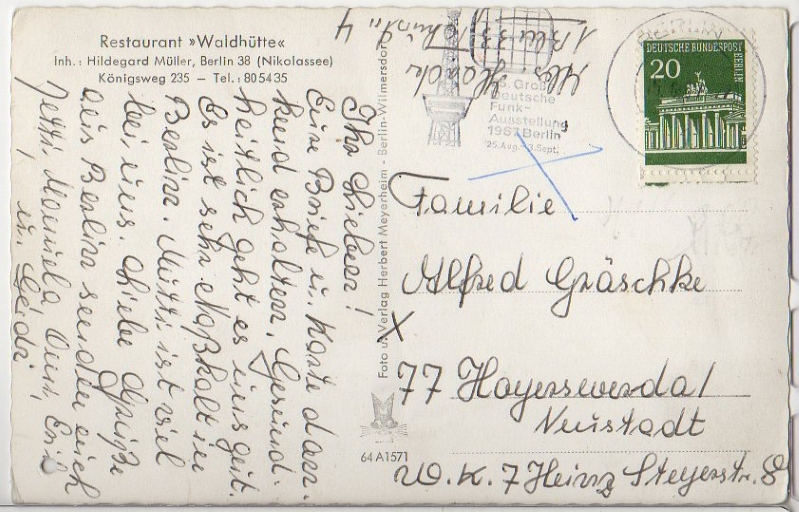 Restaurant »Waldhütte«
Inh.: Hildegard Müller, Berlin 38 (Nikolassee)
Königsweg 235 — Tel.: 80 54 35
Ihr Lieben!
Eure Briefe u. Karte dan-
kend erhalten. Gesund-
heitlich geht es uns gut.
Es ist sehr Naßkalt in
Berlin. Mutti ist viel
bei uns. Liebe Grüße
aus Berlin senden euch
Manuela
u. Heidi
Foto u. Verlag Herbert Meyerheim - Berlin-Wilmersdorf
64 A 1571
Große
Deutsche
Funk-
Ausstellung
1967 Berlin
25. Aug.-3. Sept.
BERLIN
DEUTSCHE BUNDESPOST
BERLIN
20
Abs. Haack
1 Bln 33
Familie
Alfred Gräschke
77 Hoyerswerda/
Neustadt
W.K. 7 Heinz Steyerstr. 8